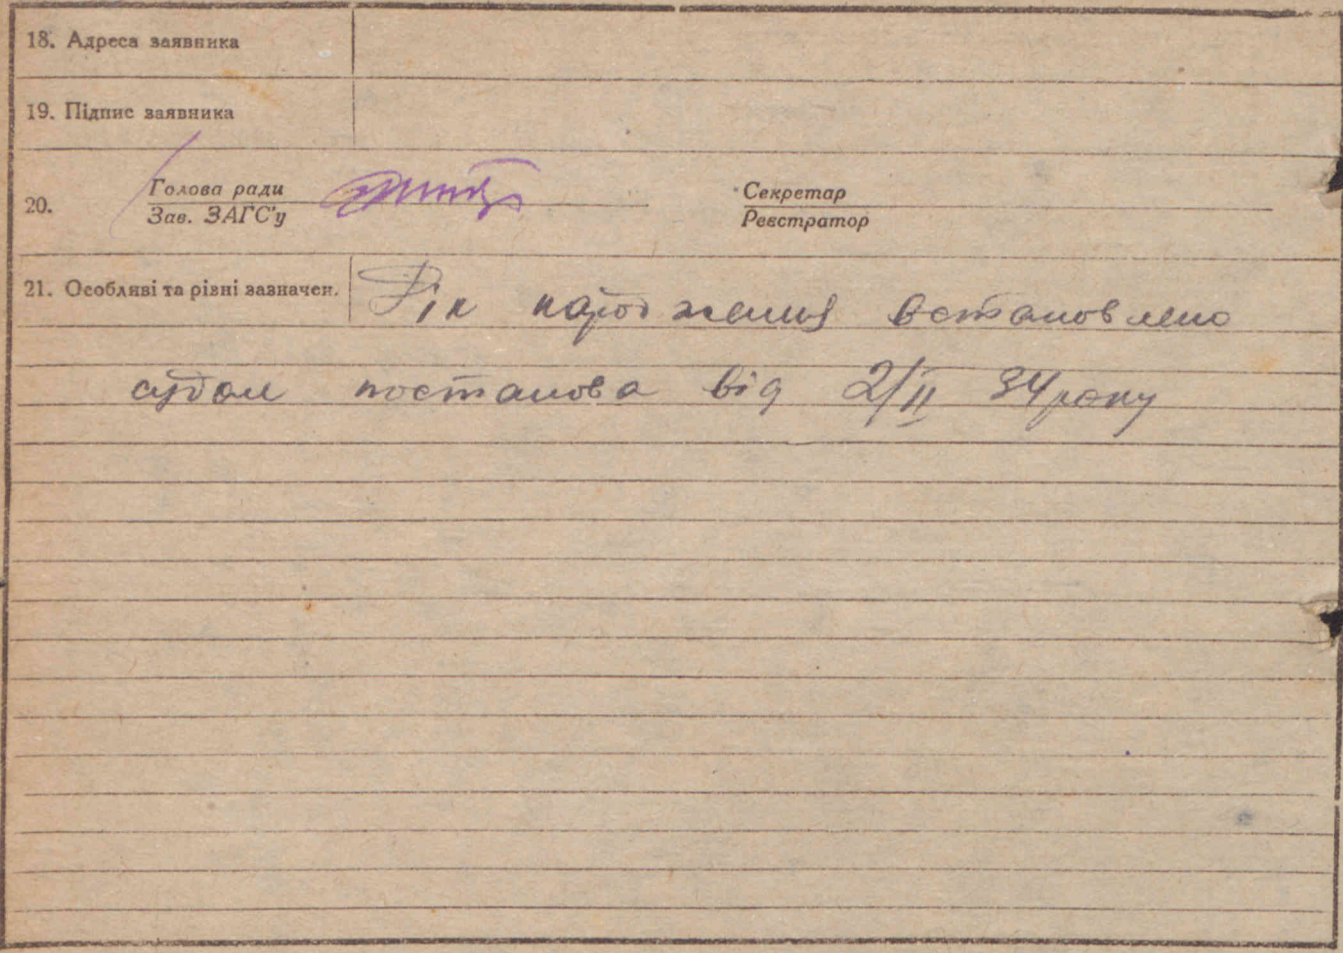 18. Адреса заявника
19. Підпис заявника
20. Голова ради
Зав. ЗАГС'у
Секретар
Реєстратор
21. Особливі та різні зазначен. Рік народження встановлено
судом постанова від 2/II 34 року